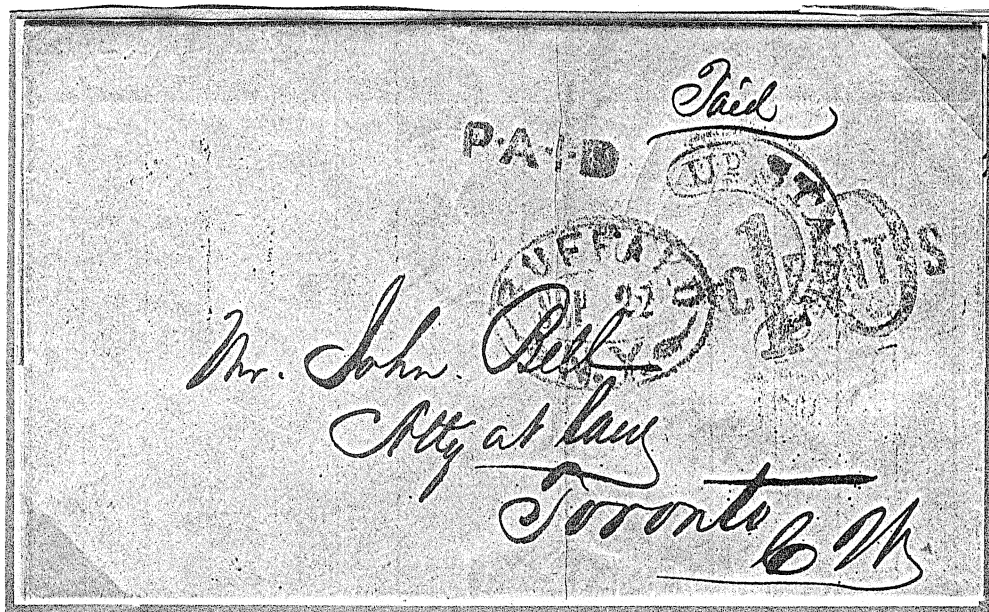 Paid
P·A·I·D
UD. STA
10
CENTS
BUFFALO
22
N.Y.
Mr. John. Bell
Atty at law
Toronto
C W